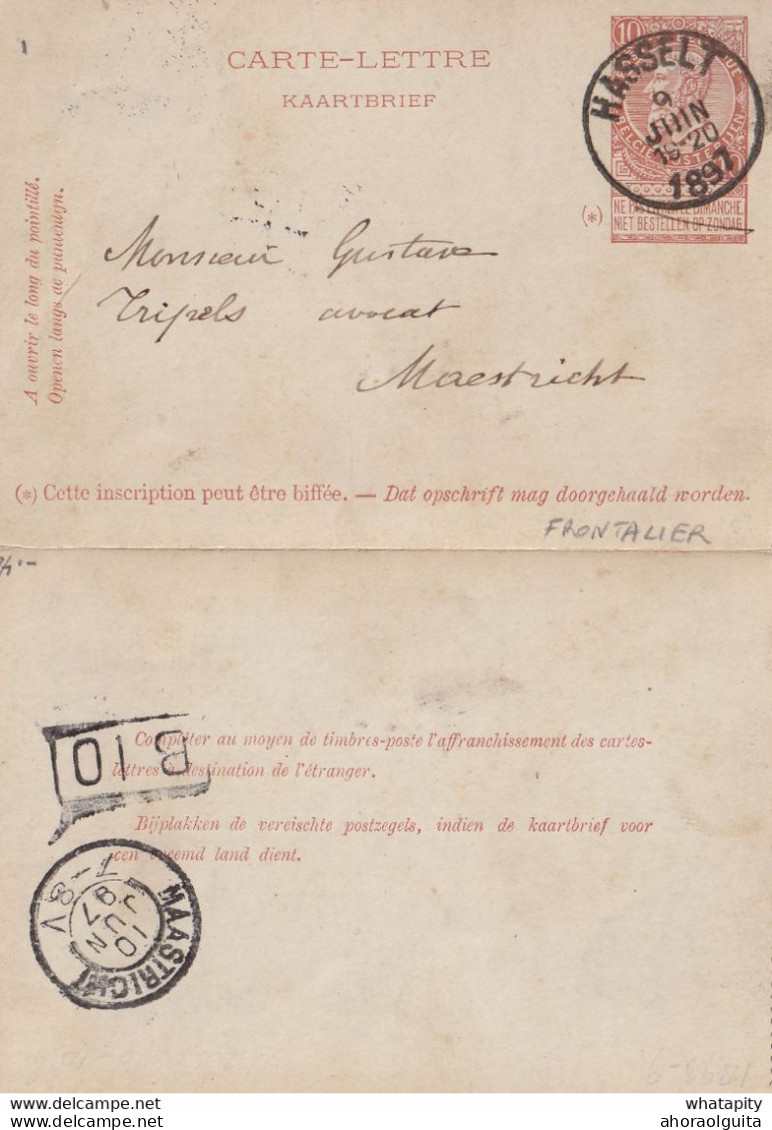 CARTE-LETTRE
KAARTBRIEF
10
HASSELT
9
JUIN
19-20
1897
NE PAS LIVRER LE DIMANCHE.
NIET BESTELLEN OP ZONDAG.
(*)
A ouvrir le long du pointillé.
Openen langs de puntenlijn.
Monsieur Gustave
Tripels avocat
Maestricht
(*) Cette inscription peut être biffée. — Dat opschrift mag doorgehaald worden.
FRONTALIER
Compléter au moyen de timbres-poste l'affranchissement des cartes-
lettres à destination de l'étranger.
Bijplakken de vereischte postzegels, indien de kaartbrief voor
een vreemd land dient.
B 10
MAASTRICHT
10
JUN
97
7-8V
whatapity
ahoraolguita